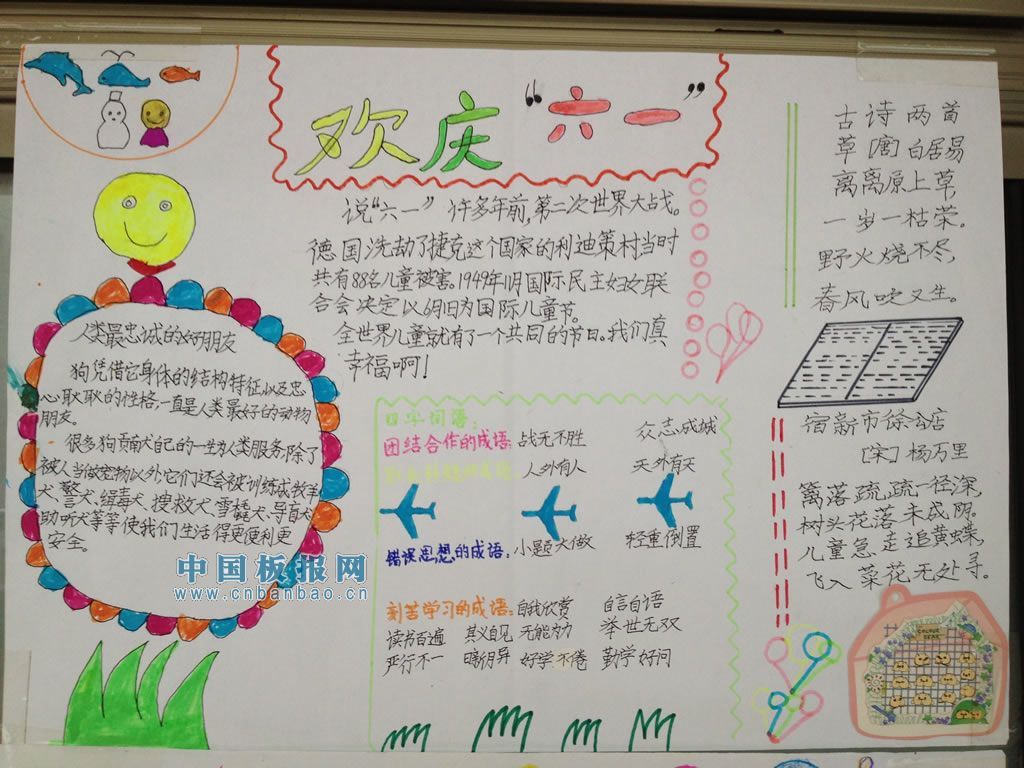 欢庆“六一”
说“六一”许多年前,第二次世界大战。
德国洗劫了捷克这个国家的利迪策村,当时
共有88名儿童被害。1949年11月国际民主妇女联
合会决定以6月1日为国际儿童节。
全世界儿童就有了一个共同的节日。我们真
幸福啊!
人类最忠诚的好朋友
狗凭借它身体的结构特征,以及忠
心耿耿的性格,一直是人类最好的动物
朋友。
很多狗贡献自己的一生为人类服务,除了
被人当做宠物以外,它们还会被训练成牧羊
犬、警犬、缉毒犬、搜救犬、雪橇犬、导盲犬
助听犬等等使我们生活得更便利更
安全。
中国板报网
www.cnbanbao.cn
四字词语:
团结合作的成语:战无不胜 众志成城
人外有人 天外有天
错误思想的成语:小题大做 轻重倒置
刻苦学习的成语:自我欣赏 自言自语
读书百遍 其义自见 无能为力 举世无双
严行不一 好学不倦 勤学好问
古诗两首
草[唐]白居易
离离原上草
一岁一枯荣。
野火烧不尽,
春风吹又生。
宿新市徐公店
[宋]杨万里
篱落疏疏一径深,
树头花落未成阴。
儿童急走追黄蝶,
飞入菜花无处寻。